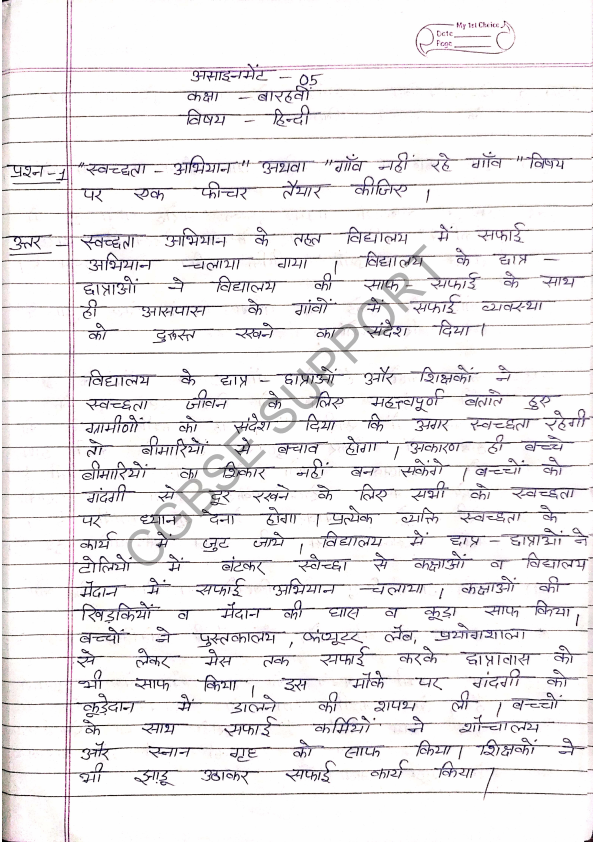 My 1st Choice
Date
Page
असाइनमेंट - 05
कक्षा - बारहवीं
विषय - हिन्दी
प्रश्न-1 "स्वच्छता - अभियान" अथवा "गाँव नहीं रहे गाँव" विषय
पर एक फीचर तैयार कीजिए।
उत्तर - स्वच्छता अभियान के तहत विद्यालय में सफाई
अभियान चलाया गया। विद्यालय के छात्र -
छात्राओं ने विद्यालय की साफ सफाई के साथ
ही आसपास के गांवों में सफाई व्यवस्था
को दुरुस्त रखने का संदेश दिया।
विद्यालय के छात्र - छात्राओं और शिक्षकों ने
स्वच्छता जीवन के लिए महत्त्वपूर्ण बताते हुए
ग्रामीणों को संदेश दिया कि अगर स्वच्छता रहेगी
तो बीमारियों से बचाव होगा। अकारण ही बच्चे
बीमारियों का शिकार नहीं बन सकेंगे। बच्चों को
गंदगी से दूर रखने के लिए सभी को स्वच्छता
पर ध्यान देना होगा। प्रत्येक व्यक्ति स्वच्छता के
कार्य में जुट जाये। विद्यालय में छात्र - छात्राओं ने
टोलियों में बंटकर स्वेच्छा से कक्षाओं व विद्यालय
मैदान में सफाई अभियान चलाया। कक्षाओं की
खिड़कियों व मैदान की घास व कूड़ा साफ किया।
बच्चों ने पुस्तकालय, कंप्यूटर लैब, प्रयोगशाला
से लेकर मेस तक सफाई करके छात्रावास को
भी साफ किया। इस मौके पर गंदगी को
कूड़ेदान में डालने की शपथ ली। बच्चों
के साथ सफाई कर्मियों ने शौचालय
और स्नान गृह को साफ किया। शिक्षकों ने
भी झाड़ू उठाकर सफाई कार्य किया।
CGBSE SUPPORT